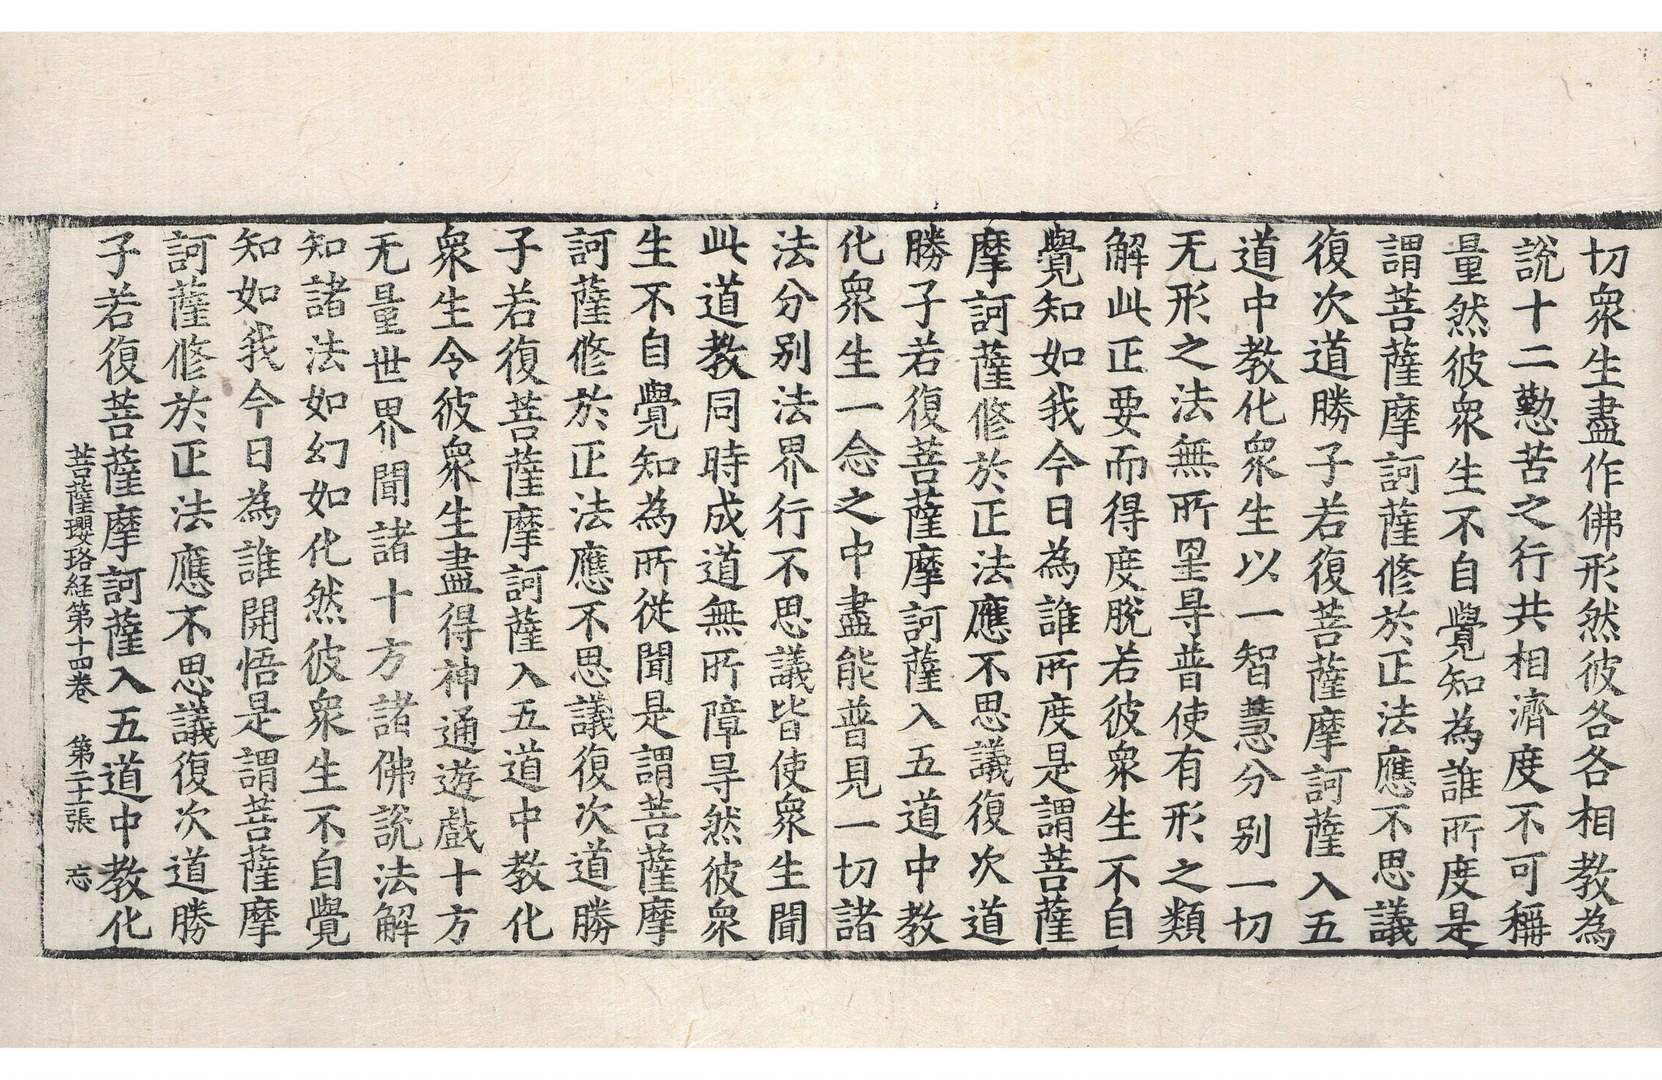 切衆生盡作佛形然彼各各相教為
說十二勤苦之行共相濟度不可稱
量然彼衆生不自覺知為誰所度是
謂菩薩摩訶薩修於正法應不思議
復次道勝子若復菩薩摩訶薩入五
道中教化衆生以一智慧分別一切
无形之法無所罣㝵普使有形之類
解此正要而得度脫若彼衆生不自
覺知如我今日為誰所度是謂菩薩
摩訶薩修於正法應不思議復次道
勝子若復菩薩摩訶薩入五道中教
化衆生一念之中盡能普見一切諸
法分別法界行不思議皆使衆生聞
此道教同時成道無所障㝵然彼衆
生不自覺知為所從聞是謂菩薩摩
訶薩修於正法應不思議復次道勝
子若復菩薩摩訶薩入五道中教化
衆生令彼衆生盡得神通遊戲十方
无量世界聞諸十方諸佛說法解
知諸法如幻如化然彼衆生不自覺
知如我今日為誰開悟是謂菩薩摩
訶薩修於正法應不思議復次道勝
子若復菩薩摩訶薩入五道中教化
菩薩瓔珞経第十四卷 第二十張 忘